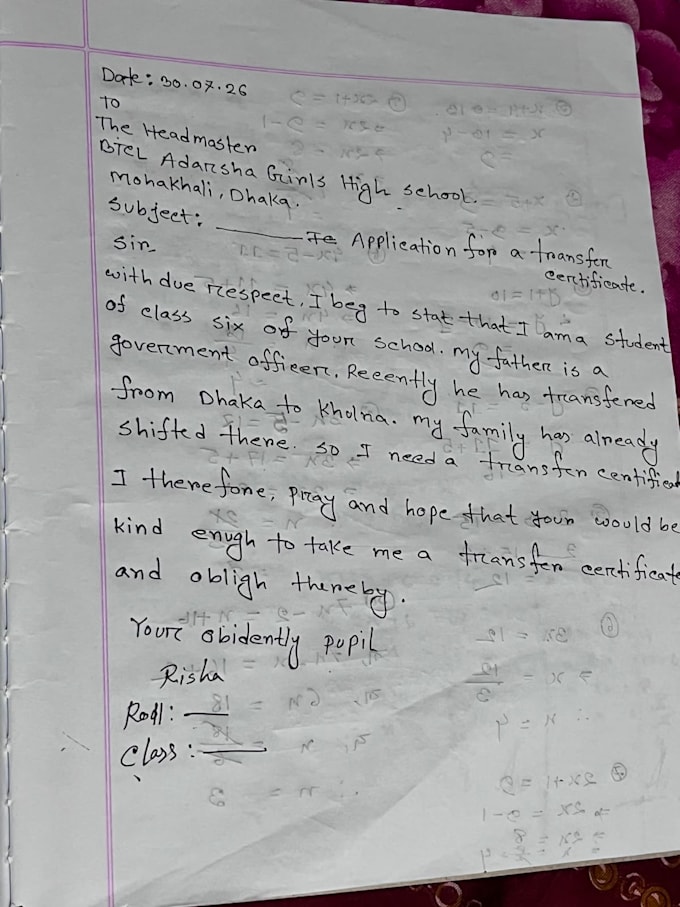 Date: 30.07.26
To
The Headmaster
BTCL Adarsha Girls High school.
Mohakhali, Dhaka.
Subject: Application for a transfer
certificate.
Sir,
with due respect, I beg to stat that I am a student
of class six of your school. my father is a
goverment officerr. Recently he has transfered
from Dhaka to Kholna. my family has already
shifted there. so I need a transfer certificat
I therefore, pray and hope that your would be
kind enugh to take me a transfer certificate
and obligh thereby.
Your obidently pupil
Risha
Roll:
Class: